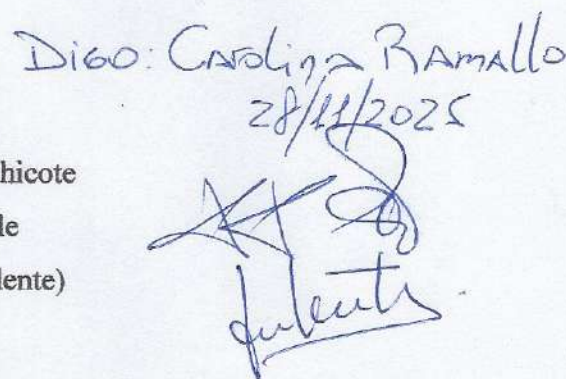 Digo: Carolina Ramallo
28/11/2025
hicote
le
lente)